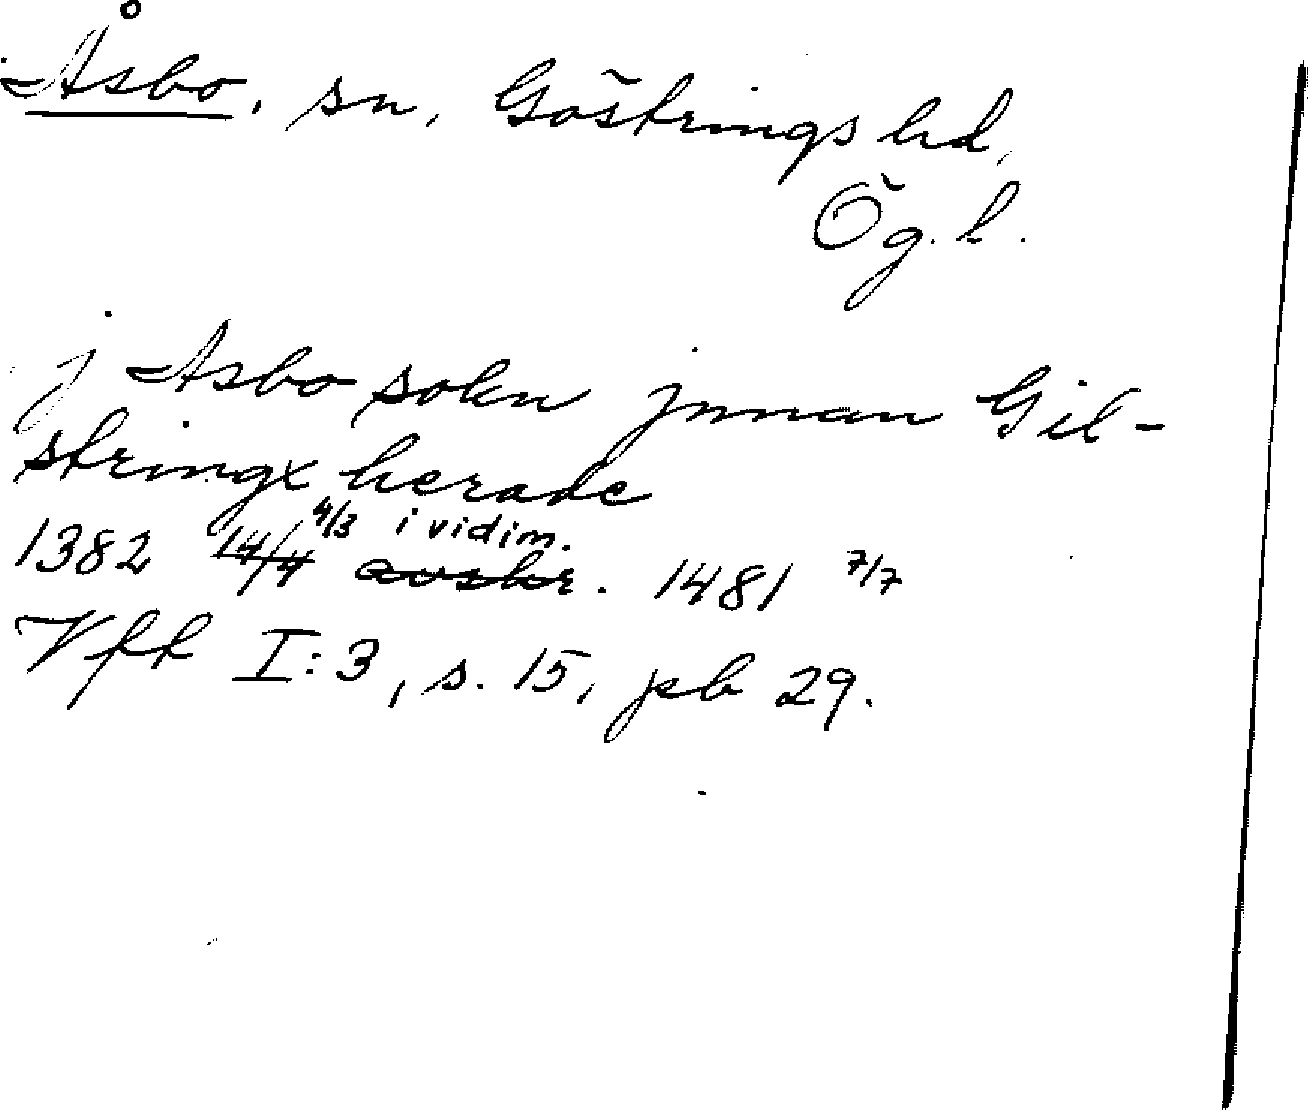 Åsbo, sn, Göstrings hd,
Ög. l.
j Asbo sokn jnnan Gil-
stringx herade
4/3 i vidim.
1382 14/4 avskr. 1481 7/7
Vfk I:3, s. 15, psb 29.